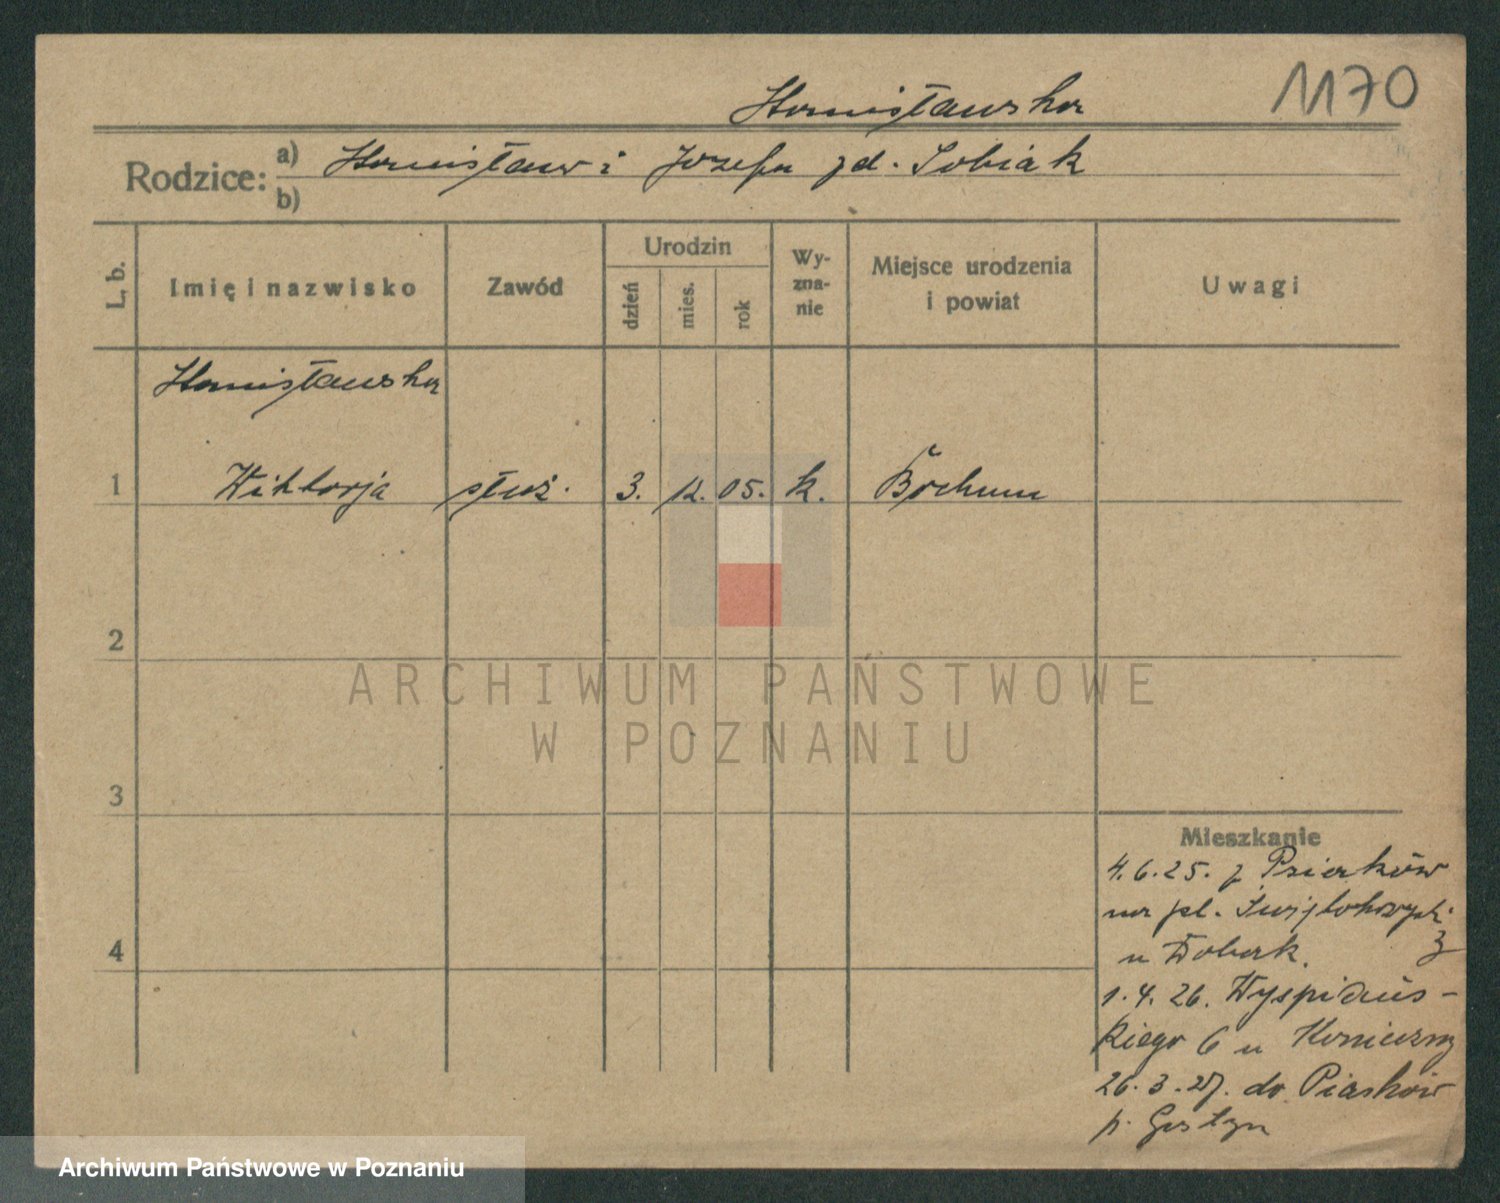 1170
Stanisławska
Rodzice:
a) Stanisław i Józefa zd. Sobiak
b)
L. b.
Imię i nazwisko
Zawód
Urodzin
dzień
mies.
rok
Wy-
zna-
nie
Miejsce urodzenia
i powiat
Uwagi
Stanisławska
1 Wiktorja służ. 3. 12. 05. k. Bochum
2
3
4
Mieszkanie
4.6.25. z Piasków
na pl. Świętokrzyski
3
u
1.4.26. Wyspiańs-
kiego 6 u Konieczny
26.3.27. do Piasków
p. Gostyn
ARCHIWUM PAŃSTWOWE
W POZNANIU
Archiwum Państwowe w Poznaniu